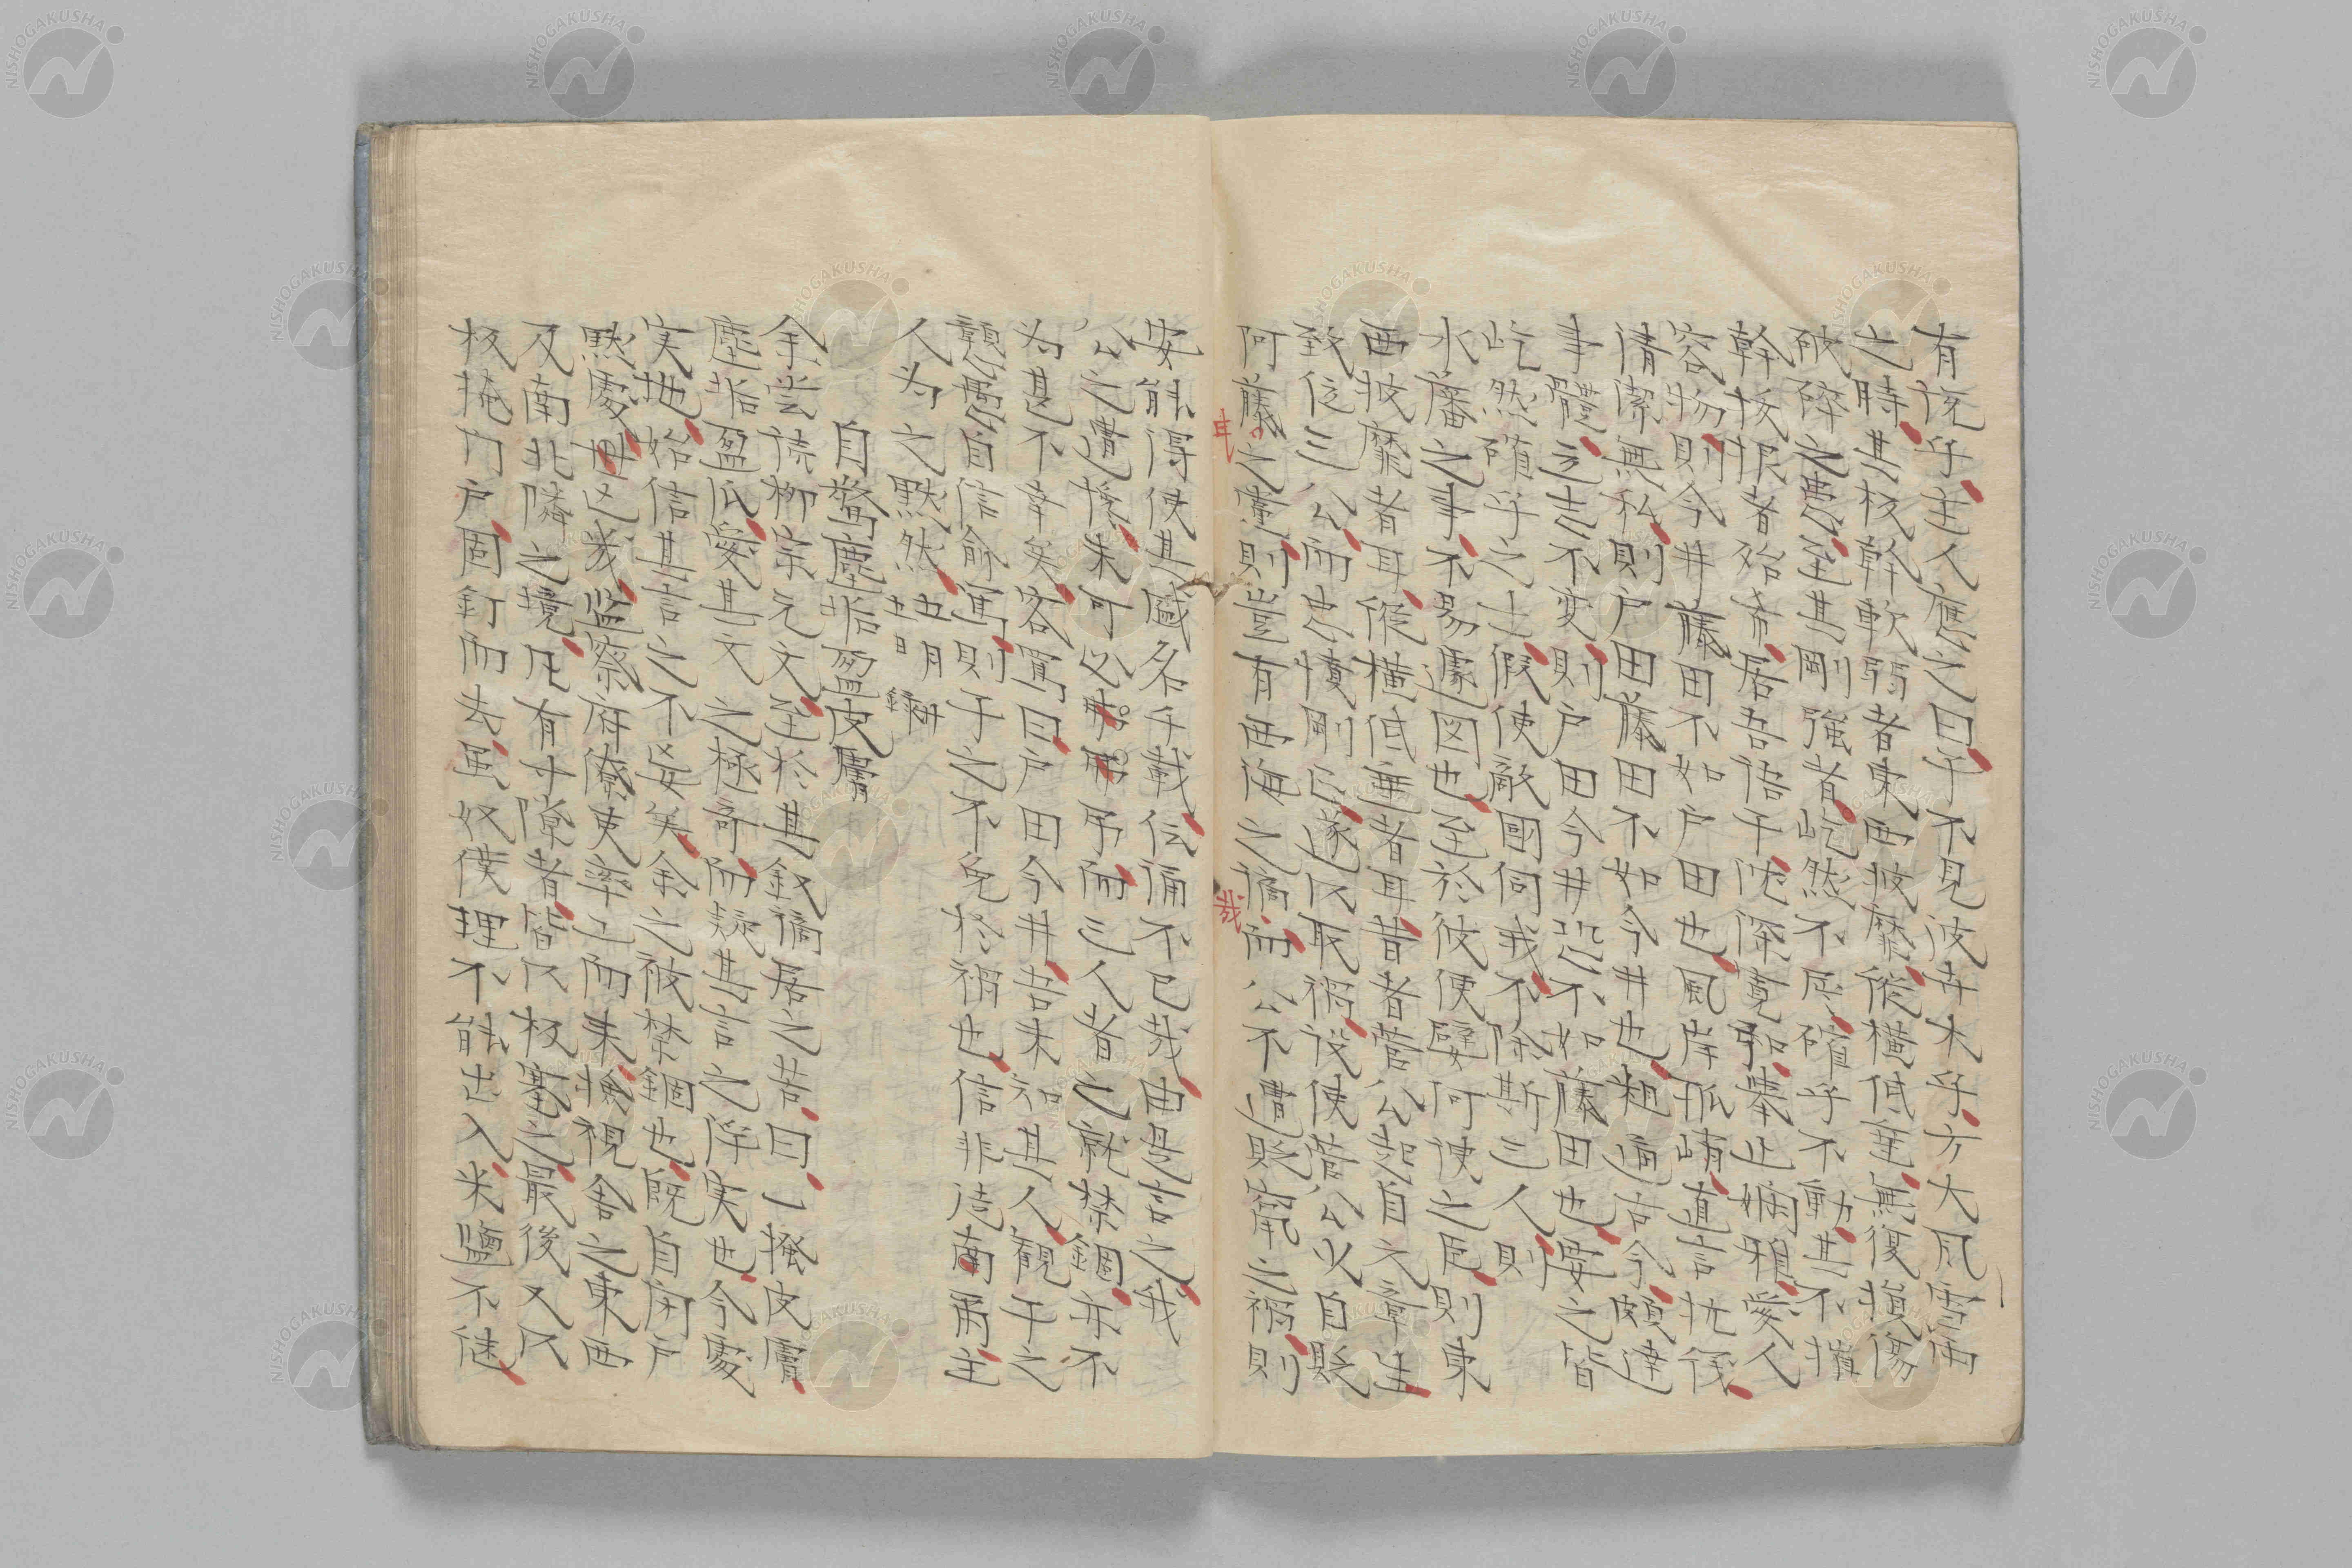 有說乎主人應之曰子不見彼卉木乎方大風雪雨
之時其枝幹軟弱者東西披靡縱横低垂無復損傷
破碎之患至其剛強者屹然不屈確乎不動其不摧
幹抜根者殆希居吾語子沈深寛和擧止嫻雅愛人
容物則今井藤田不如戸田也風岸孤峭直言抗
清潔無私則戸田藤田不如今井也粗通古今頗達
事體立志不変則戸田今井恐不如藤田也要之皆
屹然確乎之士假使敵國伺我不除斯三人則
水藩之事不易遽図也至於彼便嬖何使之臣則東
西披靡者耳縱横低垂者耳昔者菅公起自文章生
致位三公而忠憤剛正遂以取禍設使菅公少自貶
阿藤之黨則豈有西海之謫而公不遭貶竄之禍則
耳
哉
安能得使其威名千載伝誦不已哉由是言之我
公之遭 未可必 而三人者之就禁錮亦不
為甚不幸矣客罵曰戸田今井吾未知其人観子之
戇愚自信 則子之不免於禍也信非徒 爾主
人為之默然 五月五日 録
自驚塵垢盈皮膚
余嘗読柳宗元文至於其叙謫居之苦曰一搔皮膚
塵垢盈爪愛其文之極奇而疑其言之 実也今處
実地始信其言之不妄矣余之被禁錮也既自閉戸
默處 監察府僚吏率工而来撿視舎之東西
及南北隣之境凡有寸隙者皆以板塞之最後又以
板掩門戸固釘而去 奴僕理不能出入米鹽不